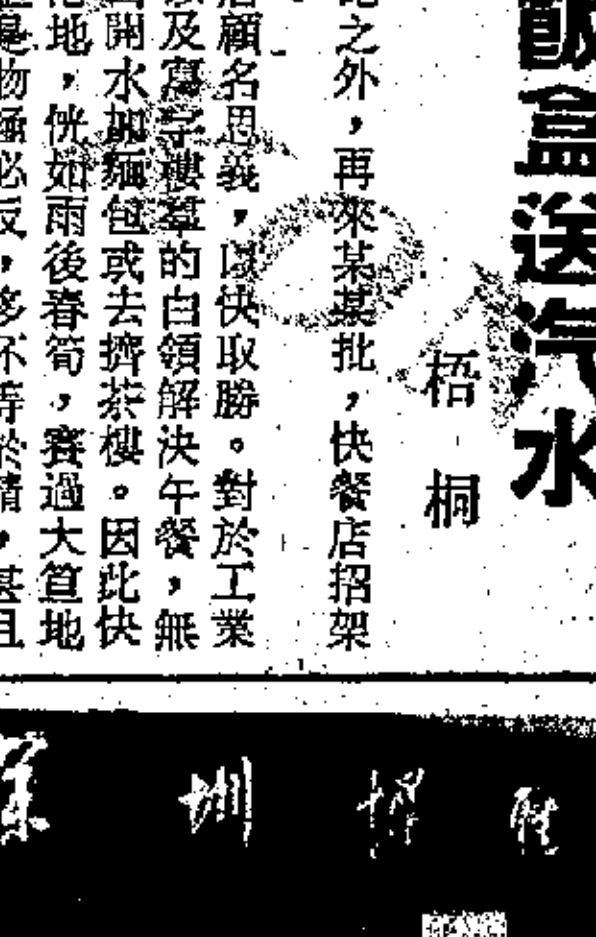 飯盒送汽水
梧桐
之外，再來某某批，快餐店招架
顧名思義，以快取勝。對於工業
及寫字樓羣的白領解決午餐，無
開水加麵包或去擠茶樓。因此快
地，恍如雨後春筍，賽過大笪地
物極必反，多不等於精，甚且
深圳